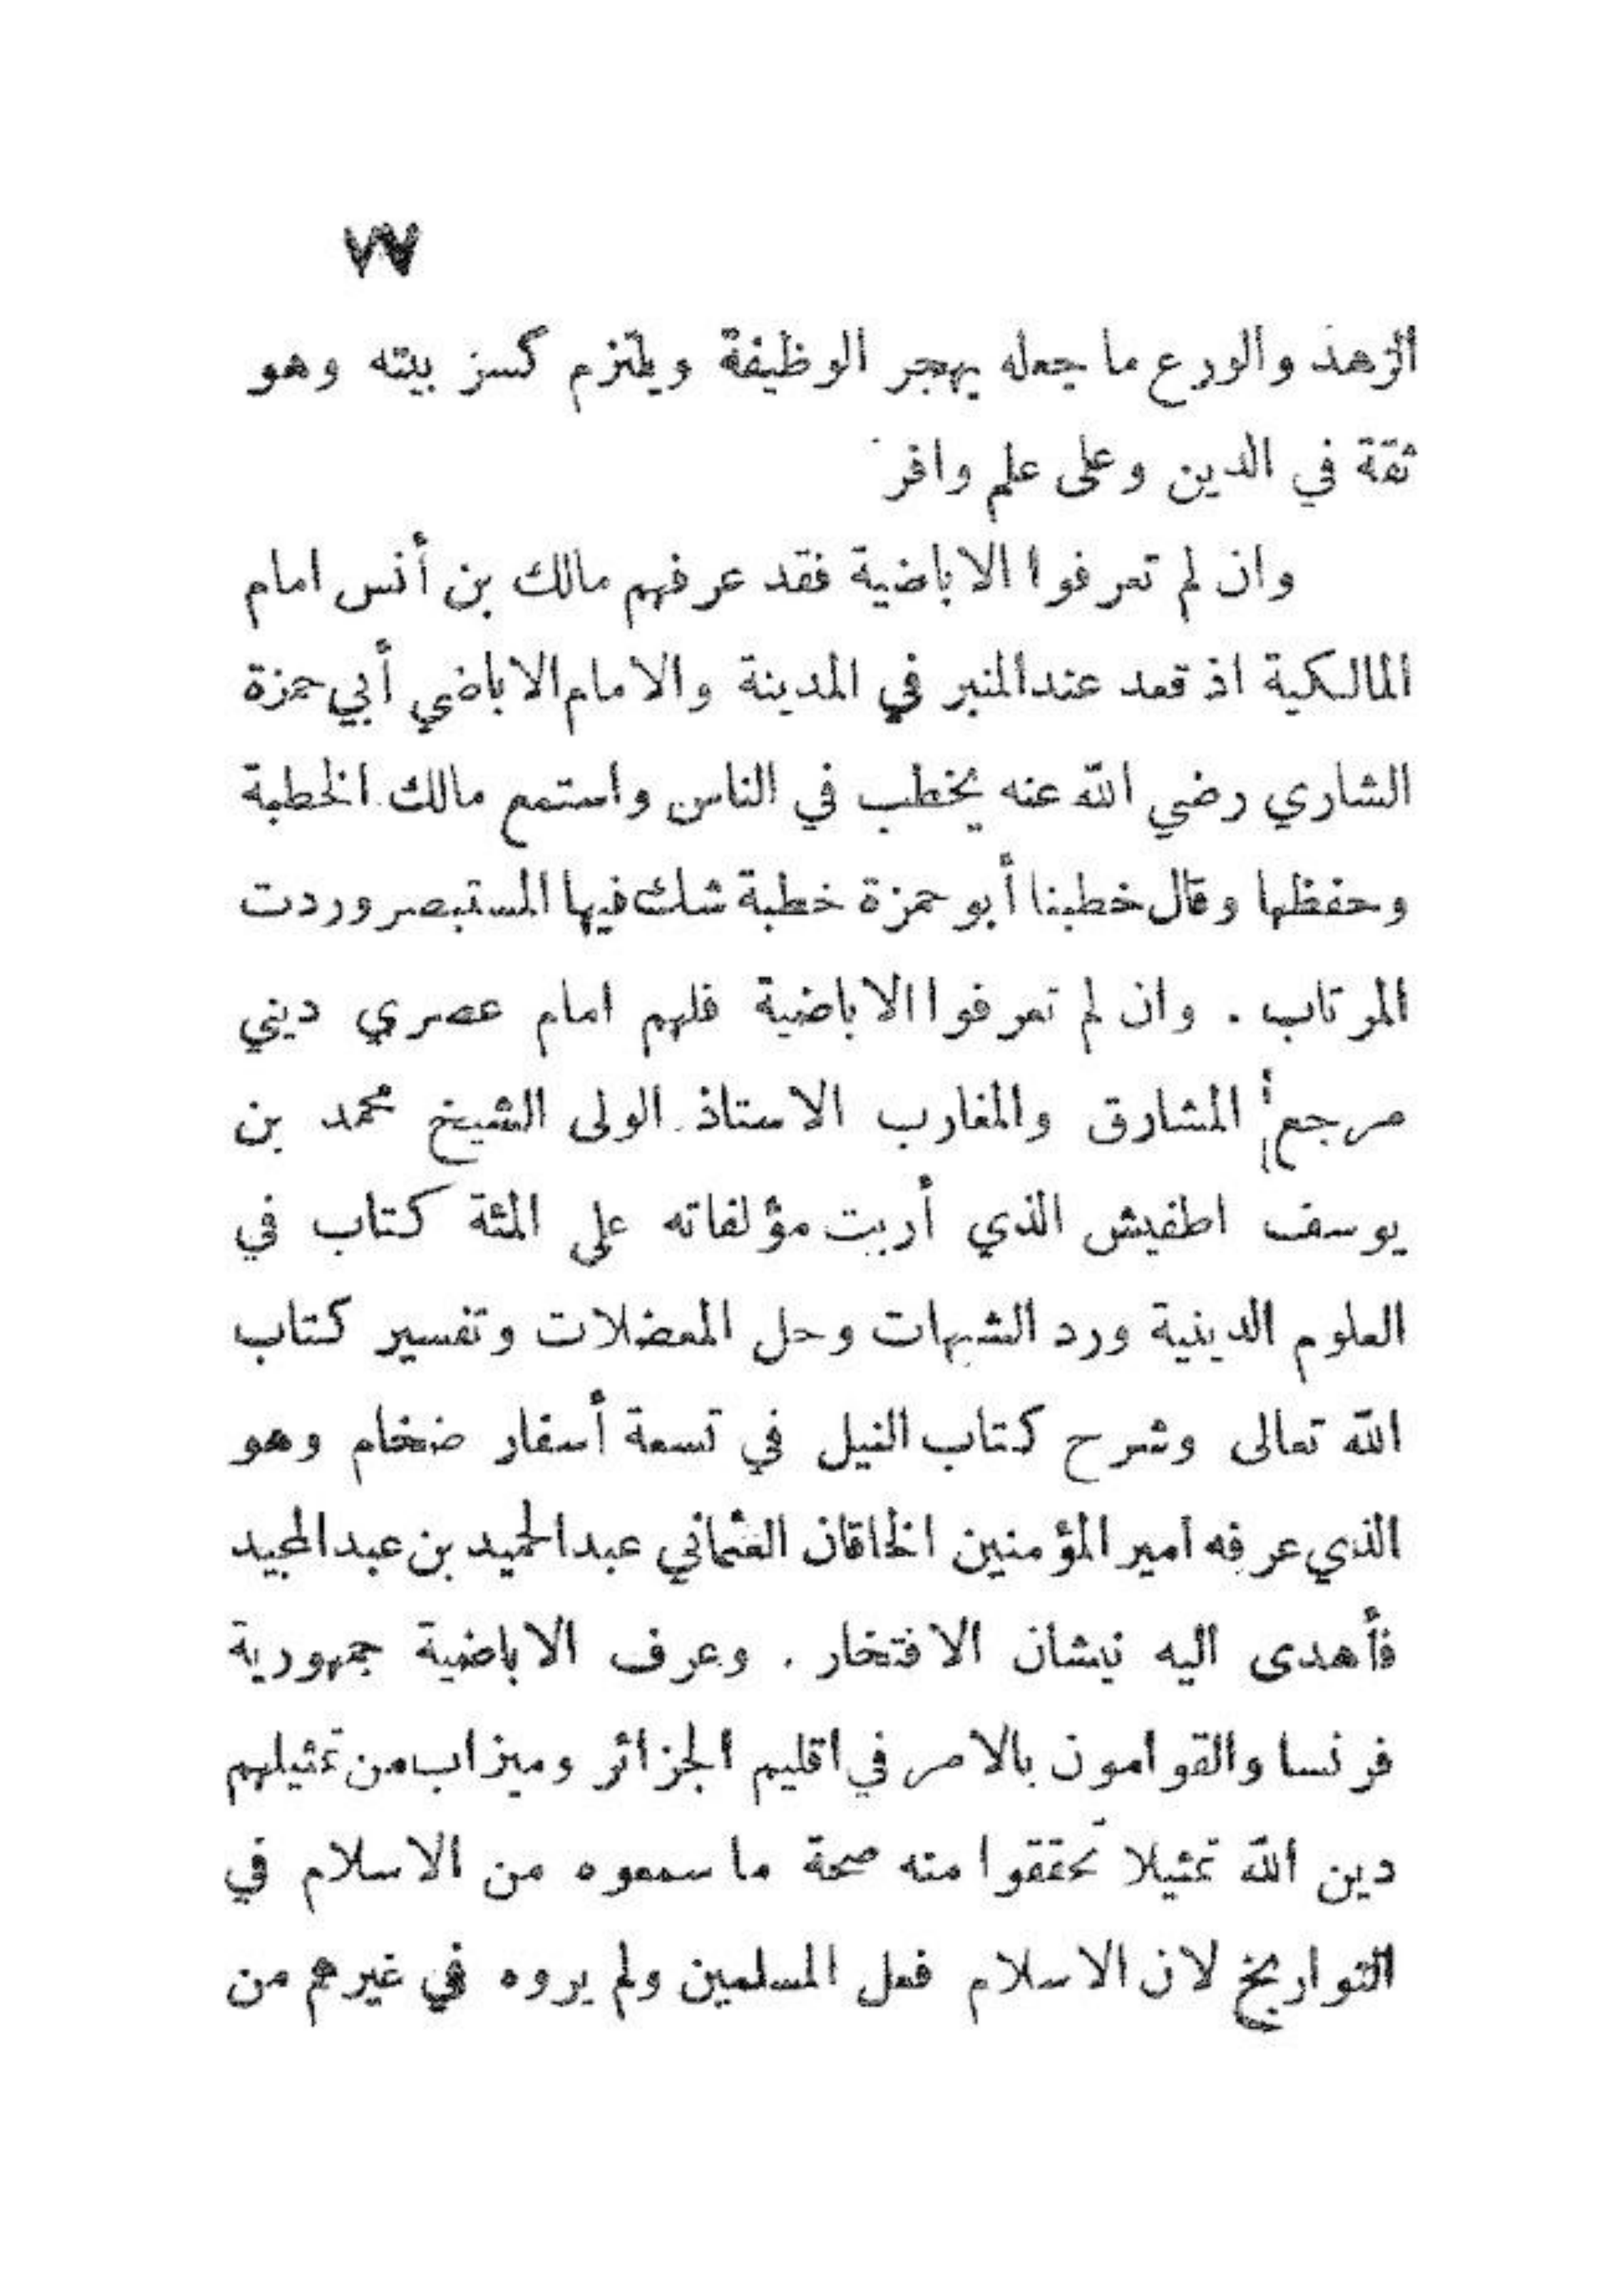 ٧٧
الزهد والورع ما جعله يهجر الوظيفة ويلتزم كسر بيته وهو
ثقة في الدين وعلى علم وافر
وان لم تعرفوا الاباضية فقد عرفهم مالك بن أنس امام
المالكية اذ قعد عند المنبر في المدينة والامام الاباضي أبي حمزة
الشاري رضي الله عنه يخطب في الناس واستمع مالك الخطبة
وحفظها وقال خطبنا أبو حمزة خطبة شك فيها المستبصر وردت
المرتاب . وان لم تعرفوا الاباضية فلهم امام عصري ديني
مرجع المشارق والمغارب الاستاذ الولى الشيخ محمد بن
يوسف اطفيش الذي أربت مؤلفاته على المئة كتاب في
العلوم الدينية ورد الشبهات وحل المعضلات وتفسير كتاب
الله تعالى وشرح كتاب النيل في تسعة أسفار ضخام وهو
الذي عرفه امير المؤمنين الخاقان العثماني عبدالحميد بن عبدالمجيد
فأهدى اليه نيشان الافتخار . وعرف الاباضية جمهورية
فرنسا والقوامون بالامر في اقليم الجزائر وميزاب من تمثيلهم
دين الله تمثيلا تحققوا منه صحة ما سمعوه من الاسلام في
التواريخ لان الاسلام فعل المسلمين ولم يروه في غيرهم من